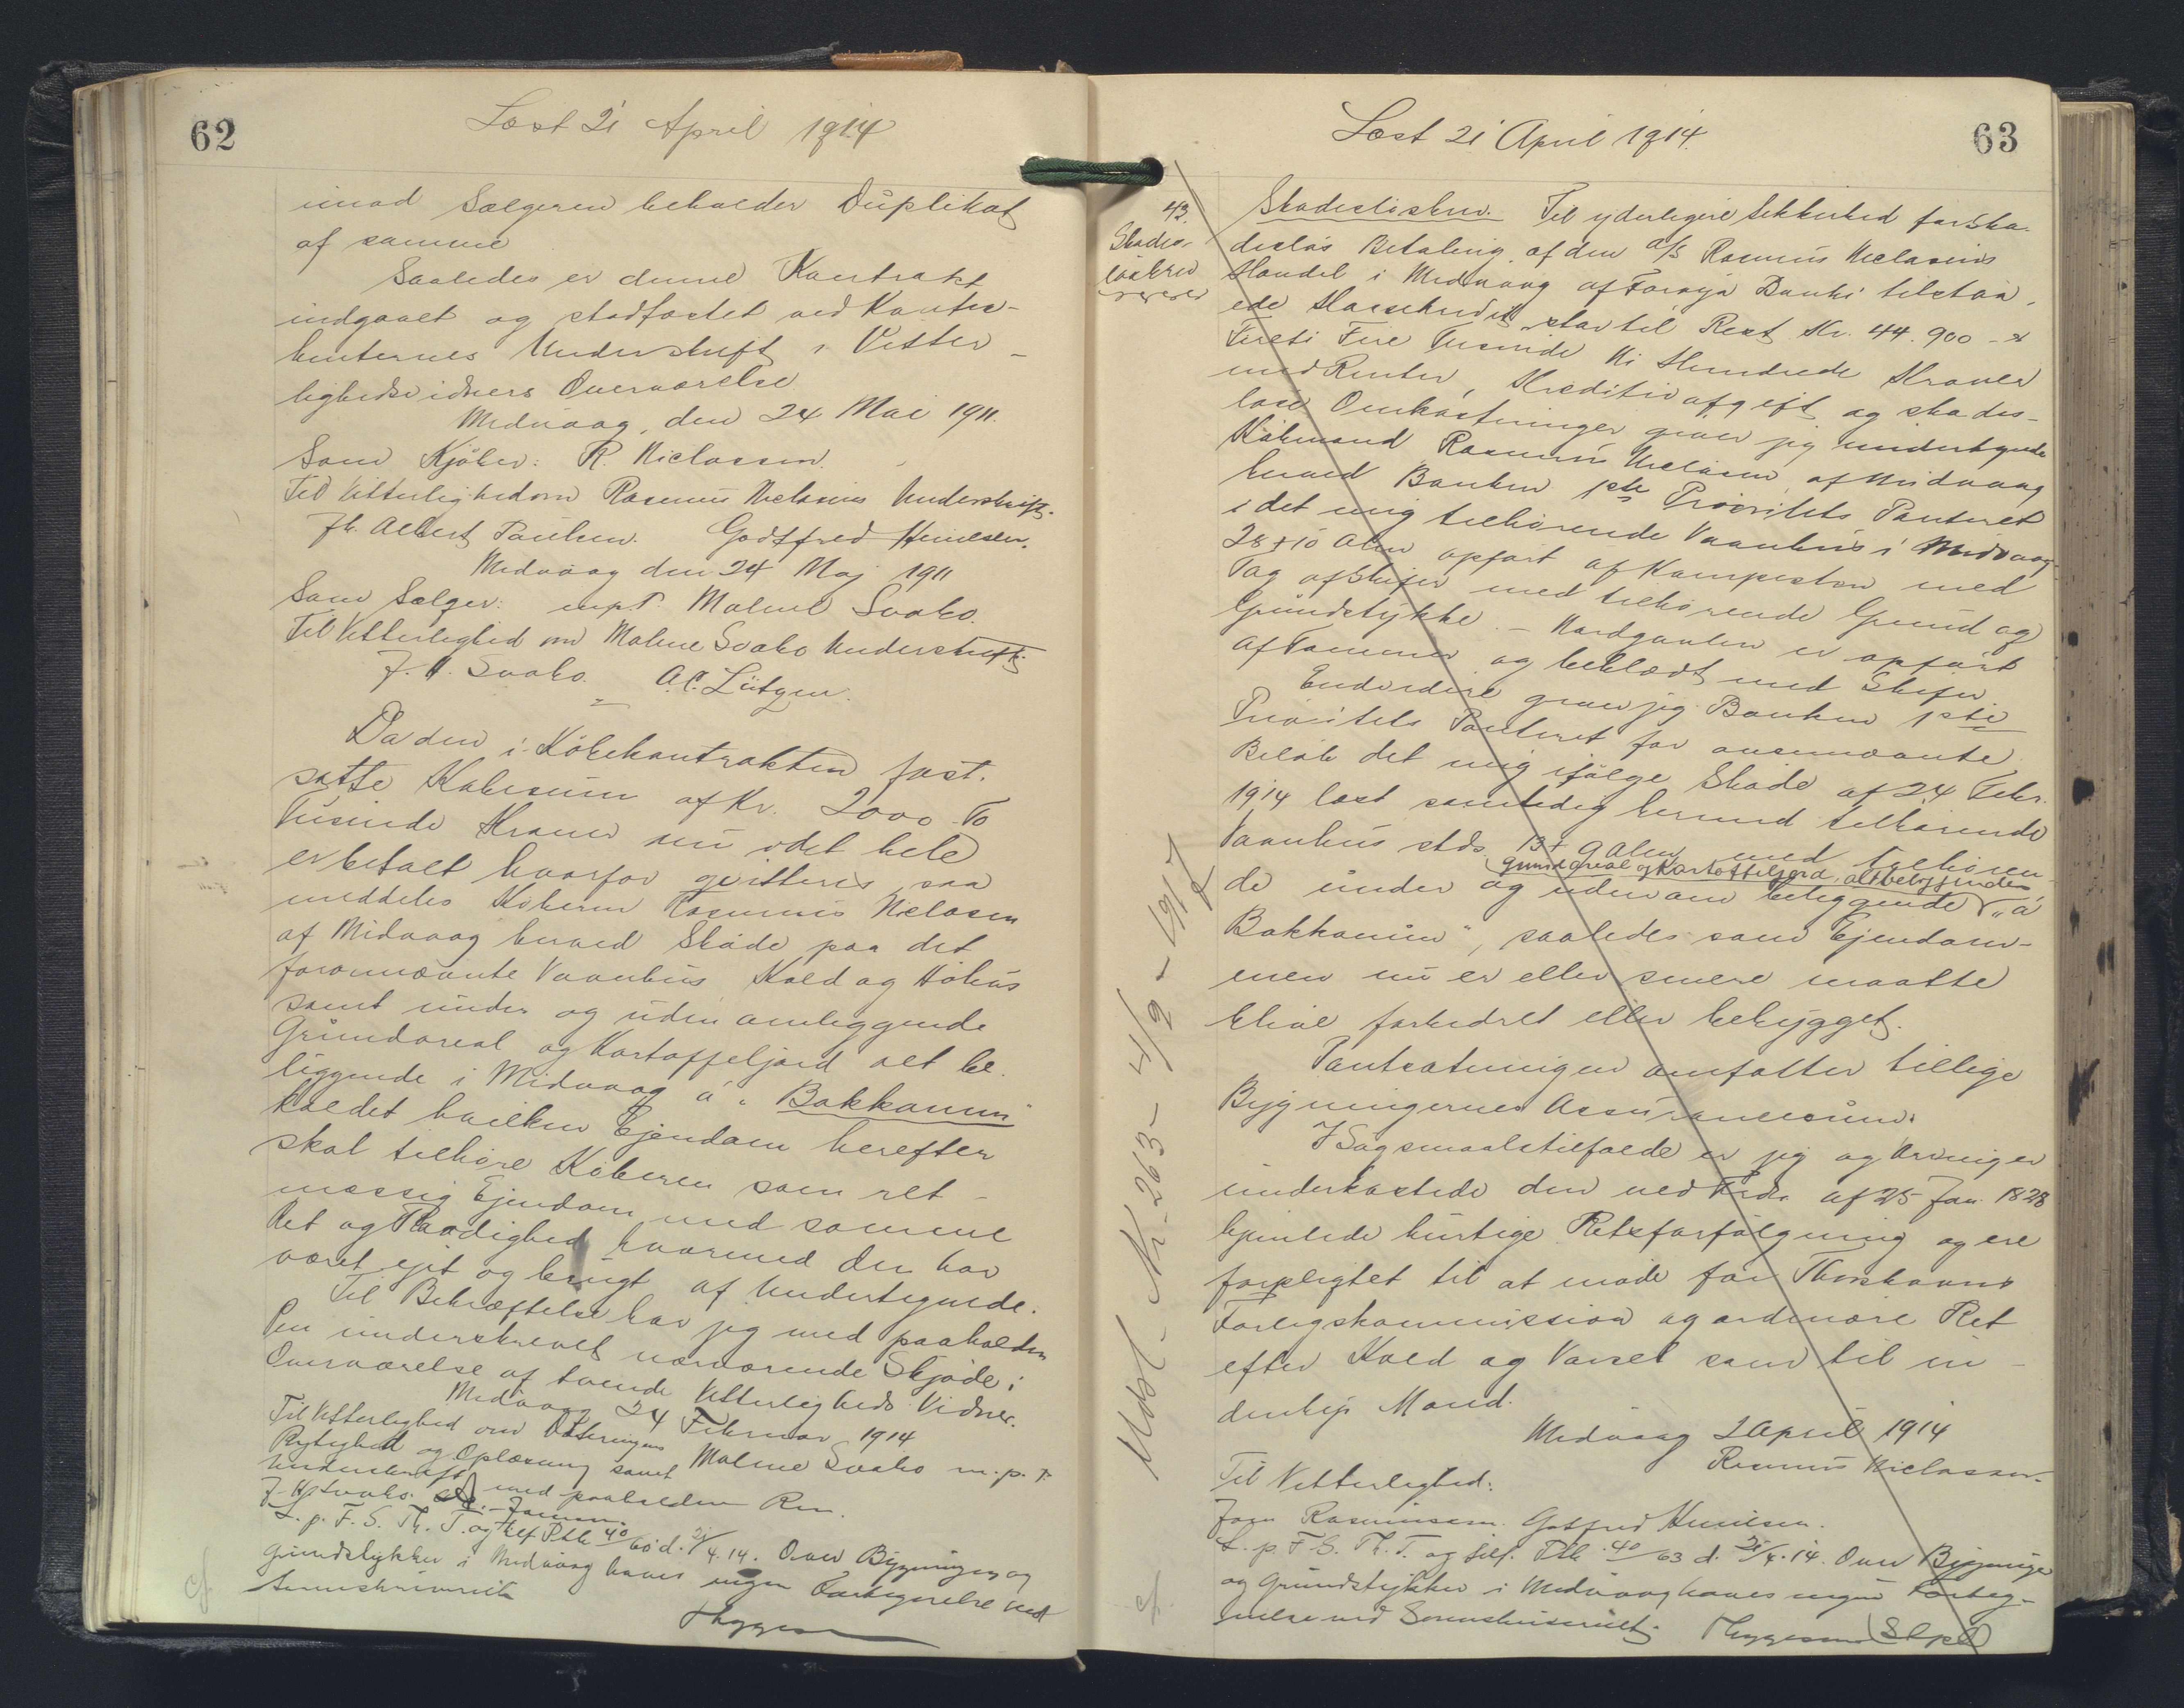 62
Læst 21 April 1914
imod Sælgeren beholder Duplikat
af samme
Saaledes er denne Kontrakt
indgaaet og stadfæstet ved Kontra-
henternes Underskrift i Vitter-
lighedsvidners Overværelse
Midvaag, den 24 Mai 1911.
Som Kjöber: R. Niclassen.
Til Vitterlighed om Rasmus Niclasens Underskrift.
Jh. Albert Paulsen. Godtfred Heinesen.
Midvaag den 24 Maj 1911
Som Sælger: Malene Svabo.
Til Vitterlighed om Malene Svabo Underskrift:
J. H. Svabo. A.C. Lützen.
Da den i Købekontrakten fast-
satte Købesum af Kr. 2000 To
Tusinde Kroner nu i det hele
er betalt hvorfor qvitteres, saa
meddeles Køberen Rasmus Niclasen
af Midvaag herved Skøde paa det
forannævnte Vaanhus Kold og Höhus
samt under og uden omliggende
Grundareal og Kartoffeljord alt be-
liggende i Midvaag á "Bakkanum"
kaldet hvilken Ejendom herefter
skal tilhøre Køberen som ret-
mæssig Ejendom med samme
Ret og Raadighed hvormed den har
været ejet og brugt af Undertegnede.
Til Bekræftelse har jeg med paaholden
Pen underskrevet nærværende Skjøde i
Overværelse af tvende Vitterligheds Vidner.
Midvaag 24 Februar 1914
Til Vitterlighed om Dateringens Malene Svabo m.p.P.
Rigtighed og Oplæsning samt
Underskrift med paaholden Pen.
J. H. Svabo. Joensen.
L. p. F. S. Th. T. og tilf. Ptb. 40/60 d. 21/4.14. Over Bygningen og
Grundstykker i Midvaag haves ingen Færtegnelse ved
Sorenskriveriet
Thygesen
63
Læst 21 April 1914.
43.
Skades-
løsbrev
Skadesløsbrev. Til yderligere Sikkerhed for ska-
desløs Betaling af den A/S Rasmus Niclasens
Handel i Midvaag af Foroya Banki tilstaa-
ede Kassekredit stor til Rest Kr. 44.900 -
Fireti Fire Tusinde Ni Hundrede Kroner
med Renter, Kreditivafgift og skades-
løse Omkostninger giver jeg undertegnede
Købmand Rasmus Niclasen af Midvaag
herved Banken 1ste Prioritets Panteret
i det mig tilhørende Vaanhus i Midvaag
28 x 10 Alen opført af Kampesten med
Tag af Skifer med tilhørende Grund og
Grundstykke. - Nordgavlen er opført
af Tømmer og beklædt med Skifer
Endvidere giver jeg Banken 1ste
Prioritets Panteret for ovennævnte
Beløb det mig ifølge Skøde af 24 Febr.
1914 læst samtidig hermed tilhørende
Vaanhus stds. 13 x 9 Alen med tilhøren-
grundareal og Kartoffeljord, alt beliggende
de under og udenom beliggende "á
Bakkanum", saaledes som Ejendom-
men nu er eller senere maatte
blive forbedret eller bebygget.
Pantsætningen omfatter tillige
Bygningernes Assurancesum.
I Søgsmaalstilfælde er jeg og Arvinger
underkastede den ved Frdn. af 25 Jan. 1828
hjemlede hurtige Retsforfølgning og ere
forpligtet til at møde for Thorshavns
Forligskommission og ordinære Ret
efter Kald og Varsel som til in-
denbys Mand.
Midvaag 2 April 1914
Rasmus Niclassen.
Til Vitterlighed:
Joen Rasmussen. Gotfred Heinesen.
L. p. F. S. Th. T. og tilf. Ptb. 40/63 d. 21/4.14. Over Bygninger
og Grundstykker i Midvaag haves ingen Førteg-
nelse ved Sorenskriveriet. Thygesen
Udsl. Nr. 263 - 4/9 - 1917